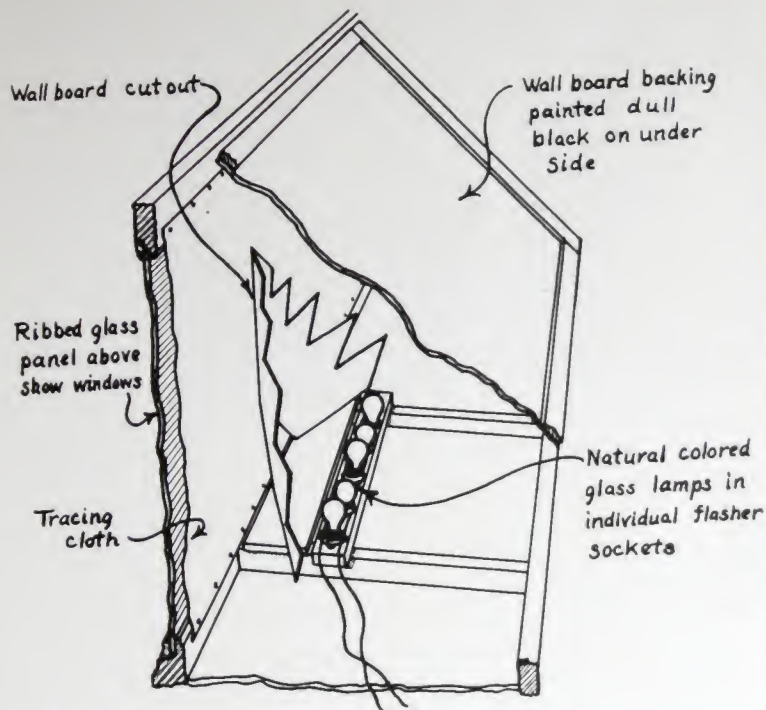 Wall board cutout
Wall board backing
painted dull
black on under
side
Ribbed glass
panel above
show windows
Tracing
cloth
Natural colored
glass lamps in
individual flasher
sockets